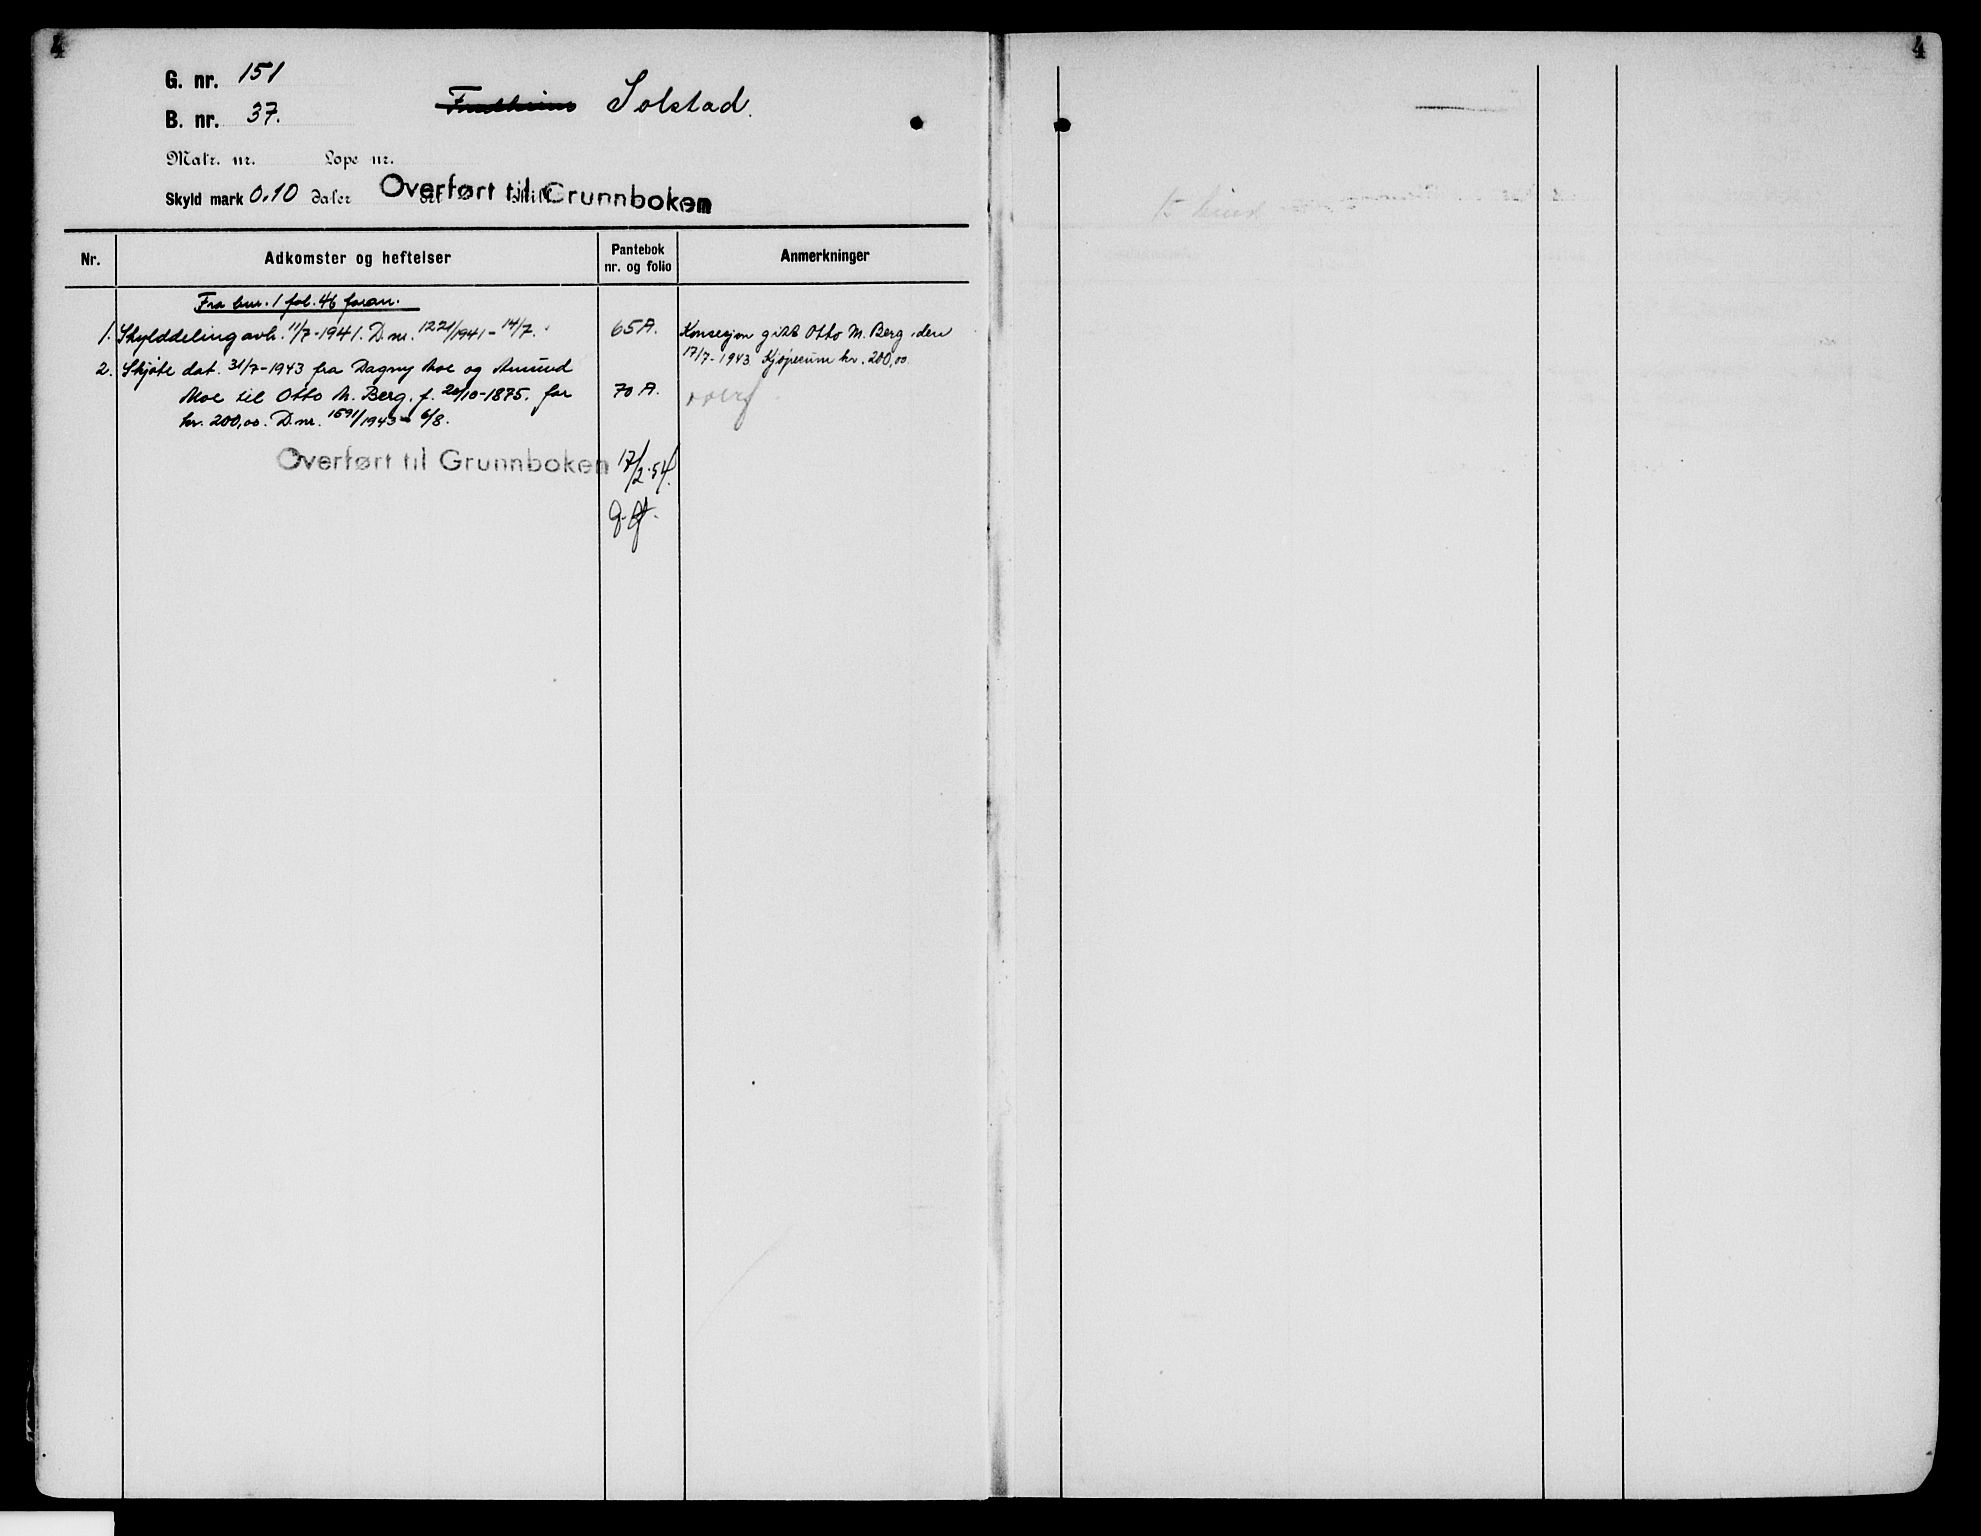 4
4
G. nr. 151
B. nr. 37.
Solstad.
Matr. nr. Løpe nr.
Skyld mark 0.10 daler ort skill.
Overført til Grunnboken
Nr. Adkomster og heftelser Pantebok nr. og folio Anmerkninger
Fra bnr. 1 fol. 46 foran.
1. Skylddeling avh. 11/7-1941. D.nr. 1221/1941-14/7. 65A. Konsesjon gitt Otto M. Berg, den
17/7-1943 Kjøpesum kr. 200,00
2. Skjøte dat. 31/7-1943 fra Dagny Moe og Amund
Moe til Otto M. Berg, f. 20/10-1875. for 70A.
kr. 200,00. D.nr. 1591/1943-6/8.
Overført til Grunnboken 17/2-54.